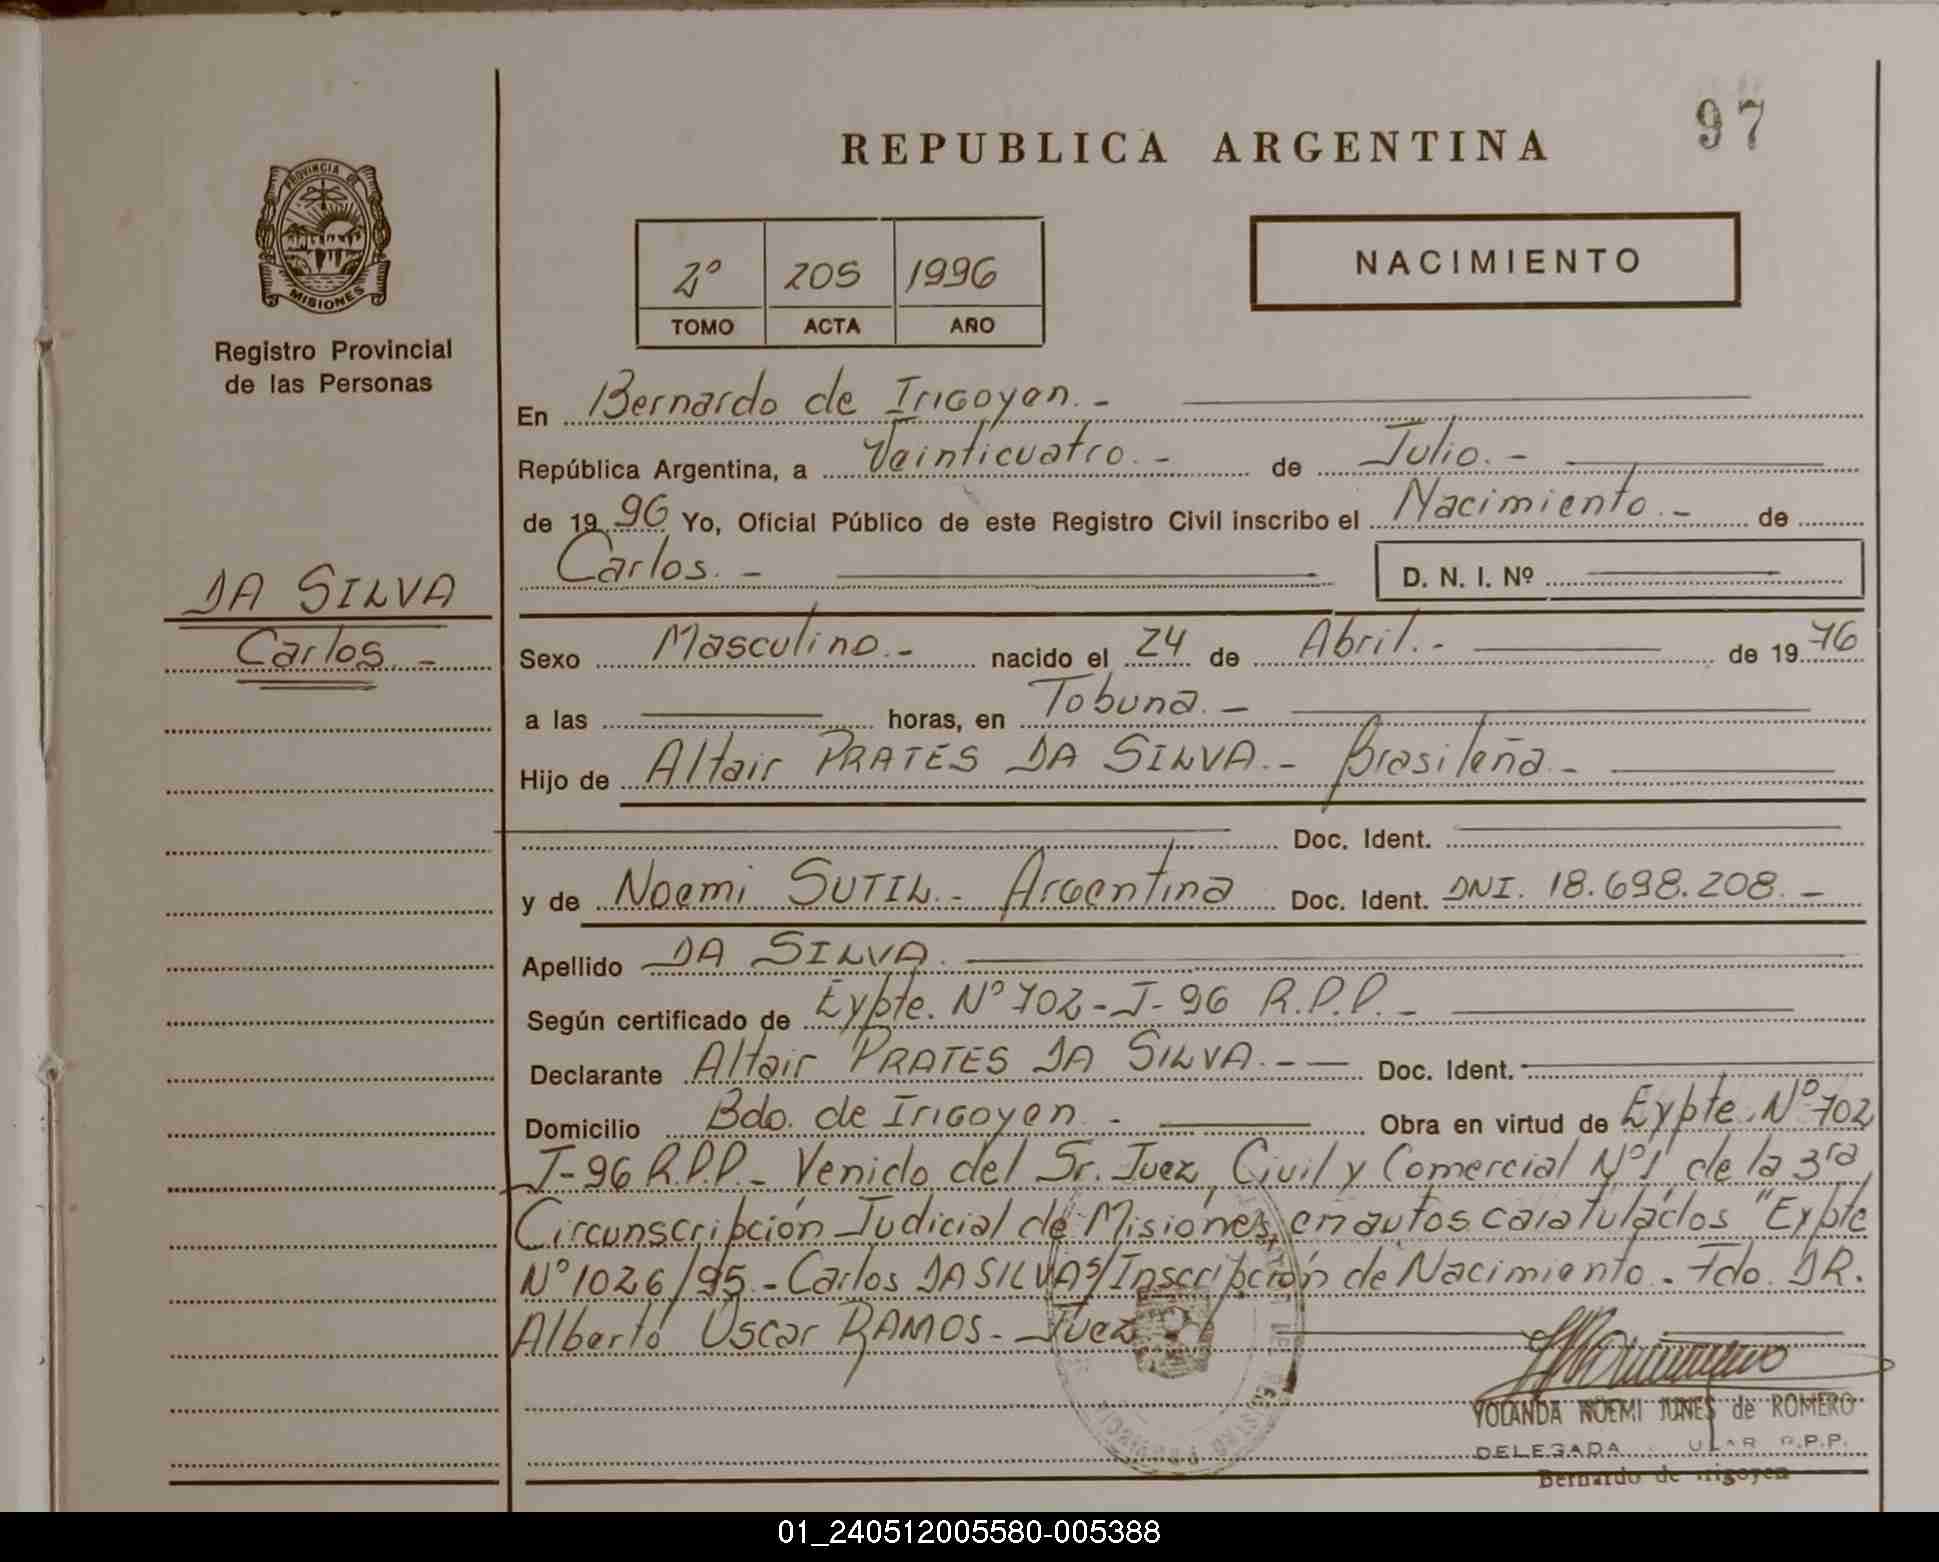 97
REPUBLICA ARGENTINA
PROVINCIA DE
MISIONES
Registro Provincial
de las Personas
2º 205 1996
TOMO ACTA AÑO
NACIMIENTO
En Bernardo de Irigoyen.-
República Argentina, a Veinticuatro.- de Julio.-
de 1996 Yo, Oficial Público de este Registro Civil inscribo el Nacimiento.- de
Carlos.- D. N. I. Nº
DA SILVA
Carlos.-
Sexo Masculino.- nacido el 24 de Abril.- de 1976
a las horas, en Tobuna.-
Hijo de Altair PRATES DA SILVA.- Brasileña.-
Doc. Ident.
y de Noemi SUTIL.- Argentina Doc. Ident. DNI. 18.698.208.-
Apellido DA SILVA.
Según certificado de Expte. Nº 702-J-96 R.P.P.-
Declarante Altair PRATES DA SILVA.- Doc. Ident.
Domicilio Bdo. de Irigoyen.- Obra en virtud de Expte. Nº 702
J-96 R.P.P.- Venido del Sr. Juez, Civil y Comercial Nº1 de la 3ra
Circunscripción Judicial de Misiones, en autos caratulados "Expte
Nº 1026/95.- Carlos DA SILVA S/Inscripción de Nacimiento.- Fdo. DR.
Alberto Oscar RAMOS- Juez
YOLANDA NOEMI JUNES de ROMERO
DELEGADA R.P.P.
Bernardo de Irigoyen
01_240512005580-005388